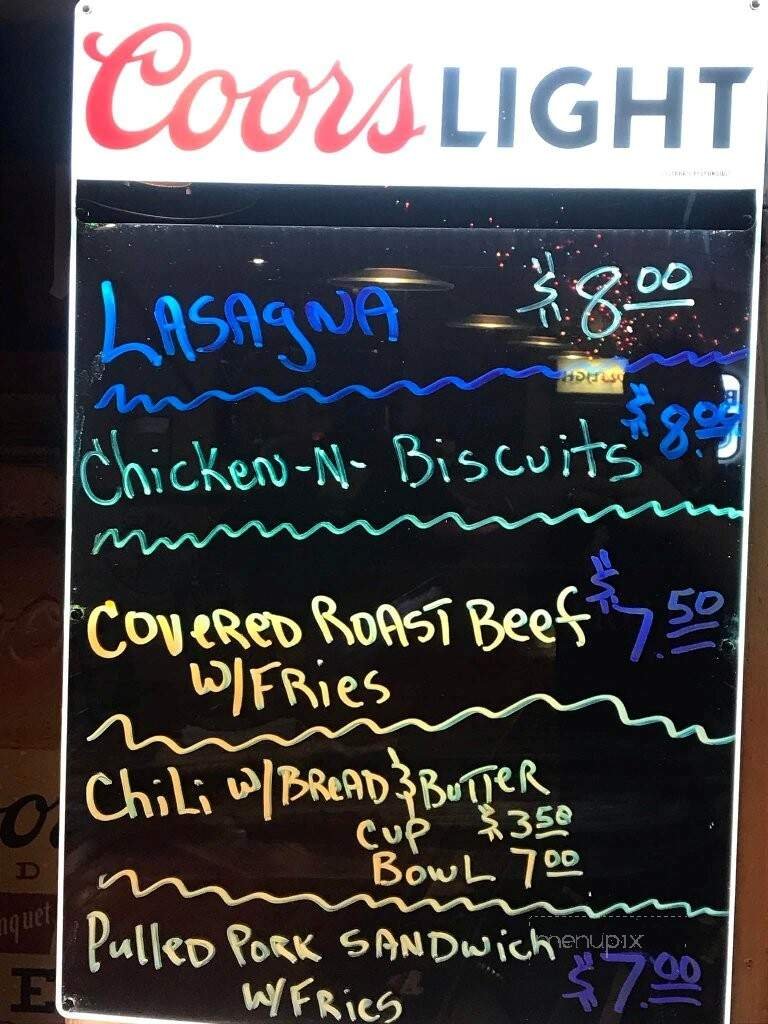 Coors LIGHT
LASAgNA $8.00
Chicken-N- Biscuits $8.00
COVeRED ROAST Beef $7.50
W/FRies
ChiLi W/BREAD & BUTTeR
CUP $3.50
BOWL 7.00
PulleD PORK SANDWich
W/FRies $7.00
menupix